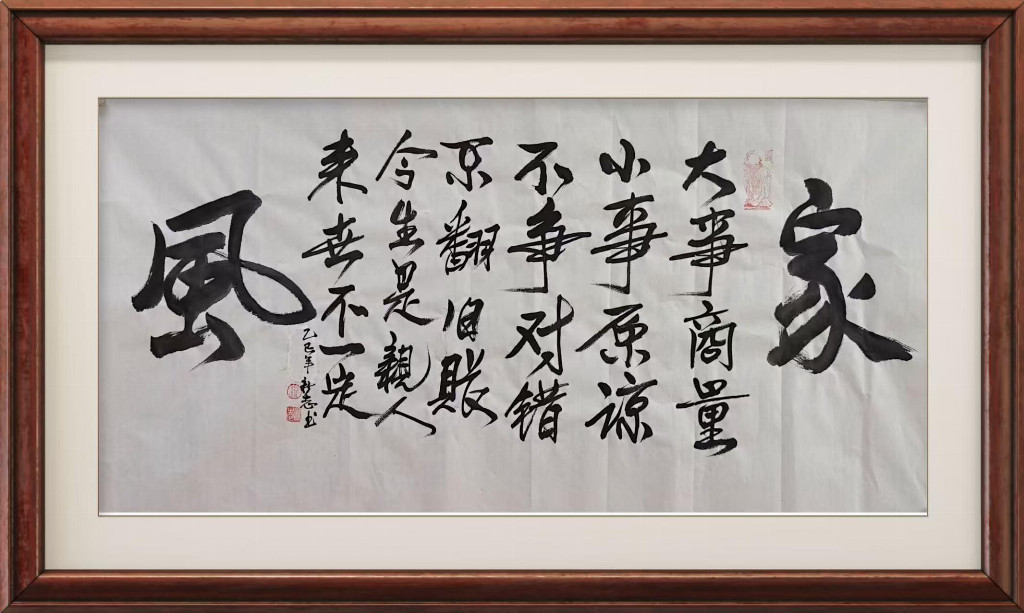 家
大事商量
小事原谅
不争对错
不翻旧账
今生是親人
来世不一定
乙巳年新志书
風